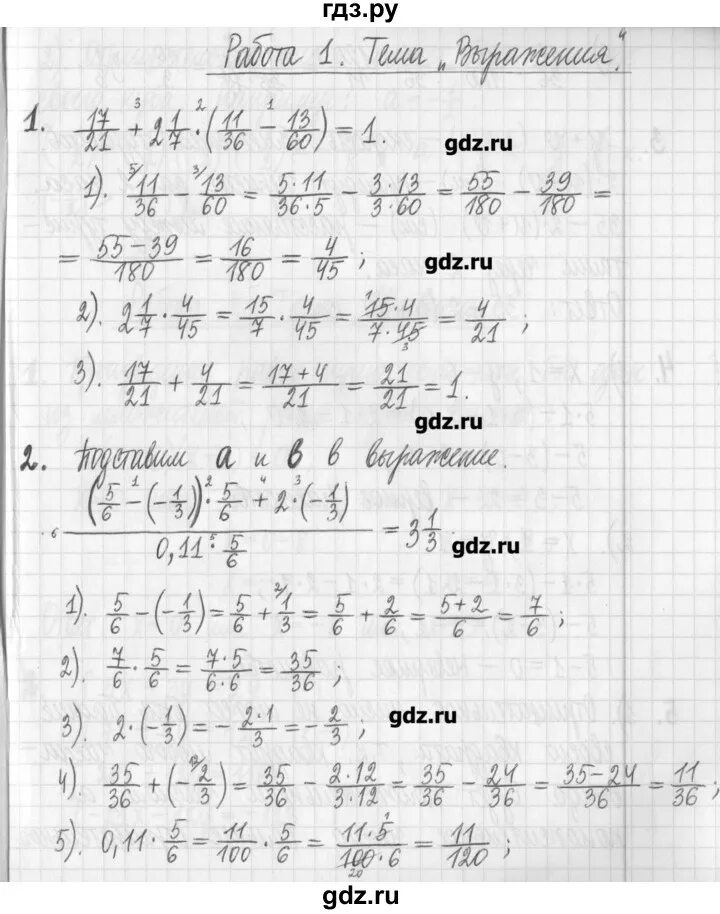 гдз.ру
Работа 1. Тема „Выражения."
1. 17/21 +³ 2 1/7 ·² (11/36 −¹ 13/60) = 1. gdz.ru
1). ⁵⁄11/36 − ³⁄13/60 = 5·11/36·5 − 3·13/3·60 = 55/180 − 39/180 =
= 55−39/180 = 16/180 = 4/45 ; gdz.ru
2). 2 1/7 · 4/45 = 15/7 · 4/45 = 15·4/7·45 = 4/21 ;
3). 17/21 + 4/21 = 17+4/21 = 21/21 = 1.
gdz.ru
2. Подставим а и в в выражение.
(5/6 −¹ (−1/3)) ·² 5/6 +⁴ 2 ·³ (−1/3) / 0,11 ·⁵ 5/6 = 3 1/3. gdz.ru
1). 5/6 − (−1/3) = 5/6 + ²⁄1/3 = 5/6 + 2/6 = 5+2/6 = 7/6 ;
2). 7/6 · 5/6 = 7·5/6·6 = 35/36 ;
3). 2·(−1/3) = − 2·1/3 = − 2/3 ; gdz.ru
4). 35/36 + (− ¹²⁄2/3) = 35/36 − 2·12/3·12 = 35/36 − 24/36 = 35−24/36 = 11/36 ;
5). 0,11 · 5/6 = 11/100 · 5/6 = 11·5/100·6 = 11/120 ;
gdz.ru